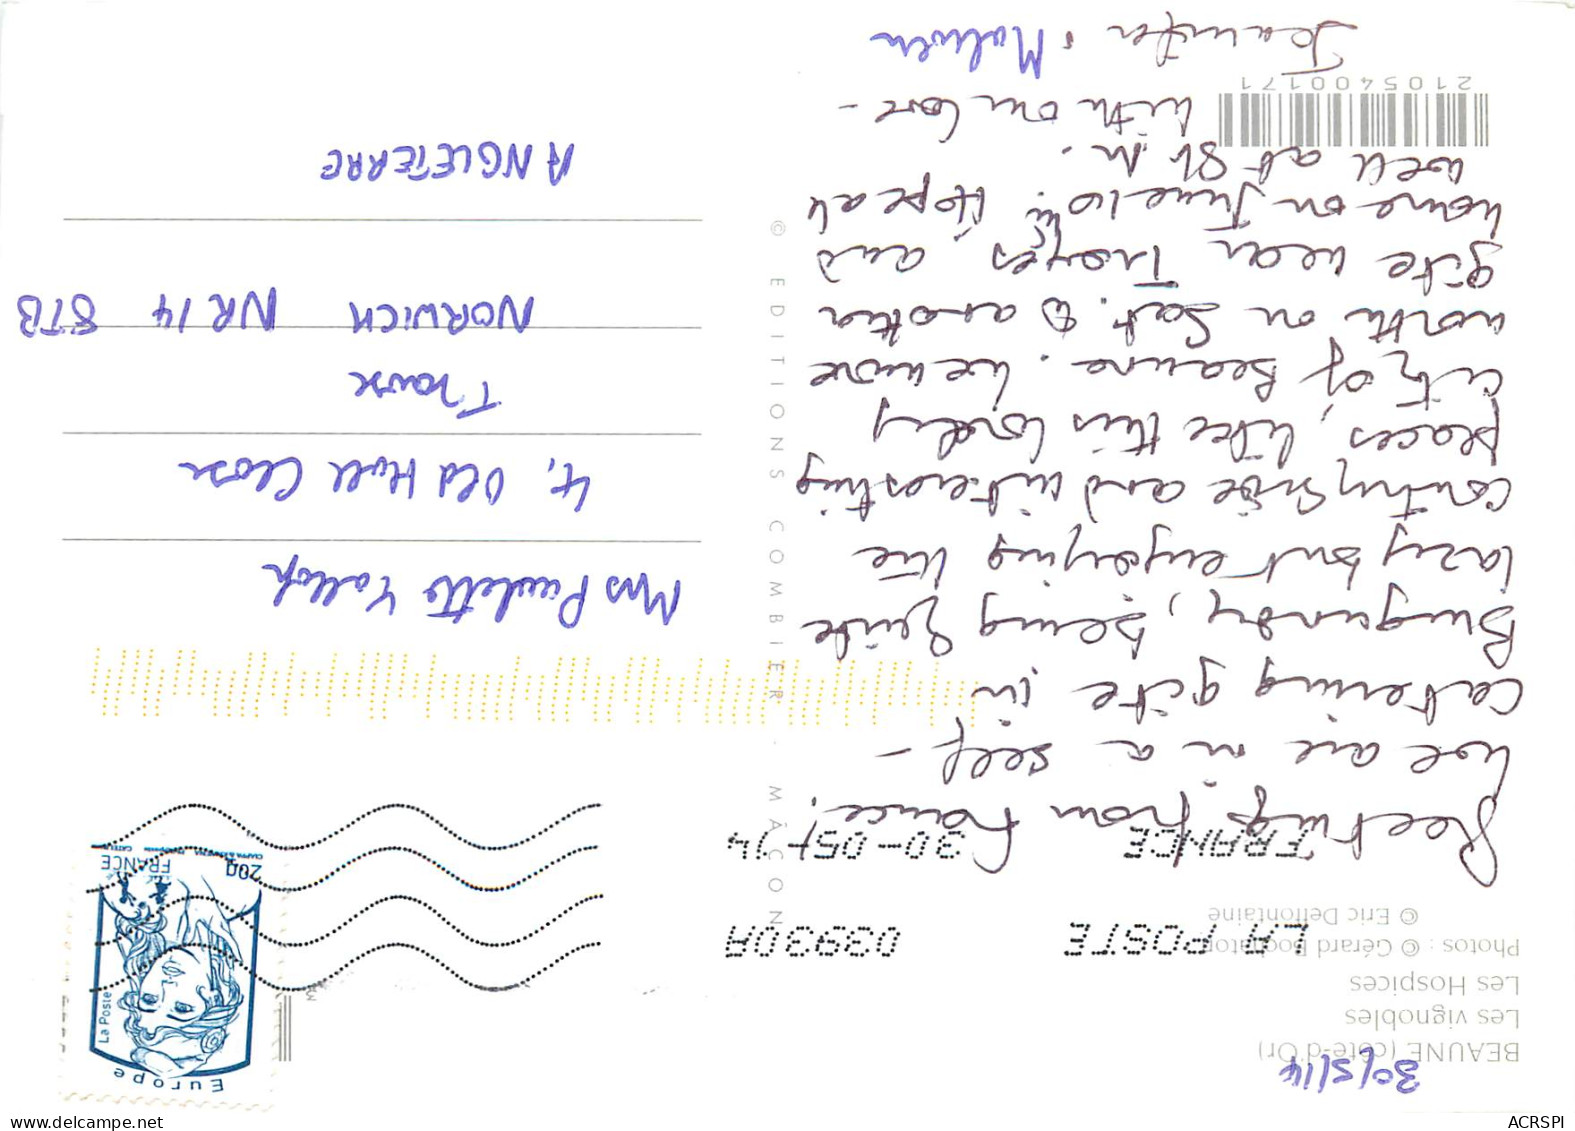 BEAUNE (côte-d'Or)
30/5/14
Les vignobles
Les Hospices
Photos : © Gérard
© Eric Delfontaine
LA POSTE 03930A
FRANCE 30-05-14
Greetings from France!
We are in a self-
catering gîte in
Burgundy, being quite
lazy but enjoying the
countryside and interesting
places, like this lovely
city of Beaune. We move
north on Sat. to another
gîte near Troyes, and
home on June 10th. Hope all
well at St. M.
With our love -
Jennifer & Malcolm
210540017 1
© EDITIONS COMBIER MÂCON
Europe
La Poste
20g
FRANCE
Mrs Paulette Yallop
4, Old Hall Close
Thorpe
NORWICH NR14 8TB
ANGLETERRE
ACRSPI